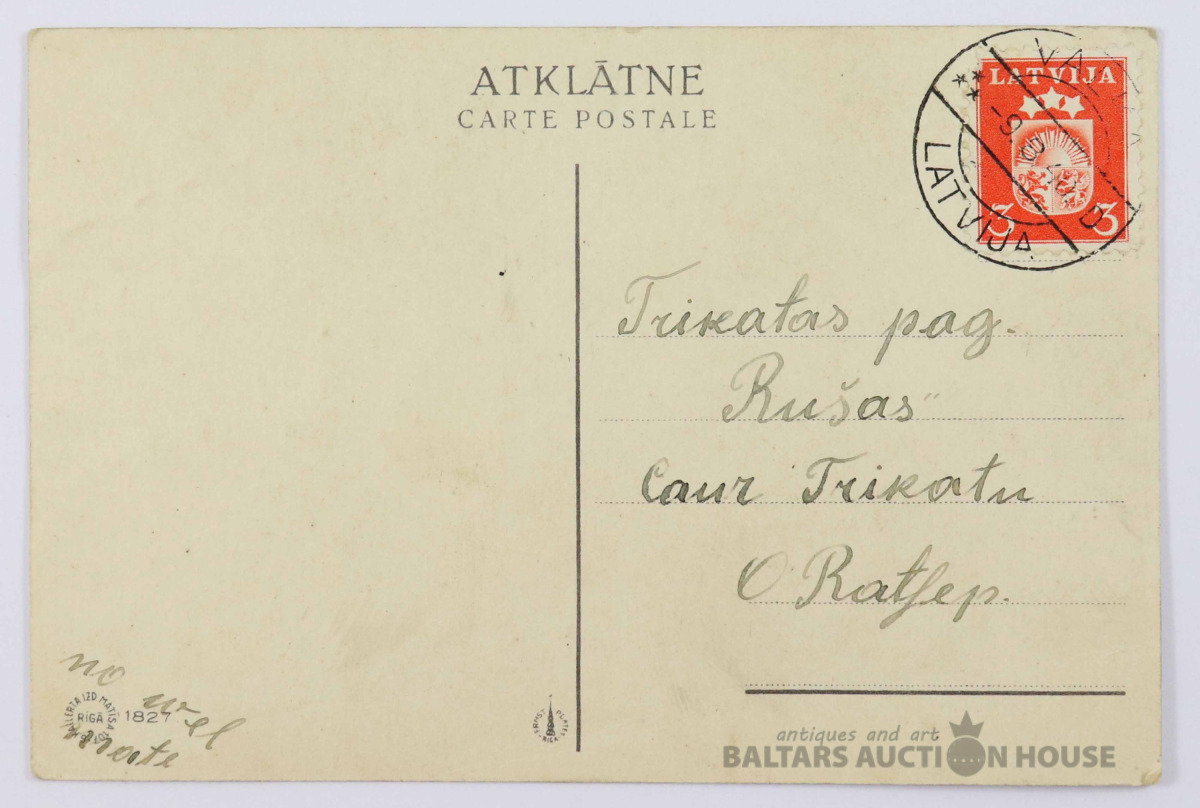 ATKLĀTNE
CARTE POSTALE
LATVIJA
3 3
LATVIJA
Trikatas pag.
Rušas"
Caur Trikatu
O Ratsep.
no
RĪGĀ 1827
antiques and art
BALTARS AUCTION HOUSE